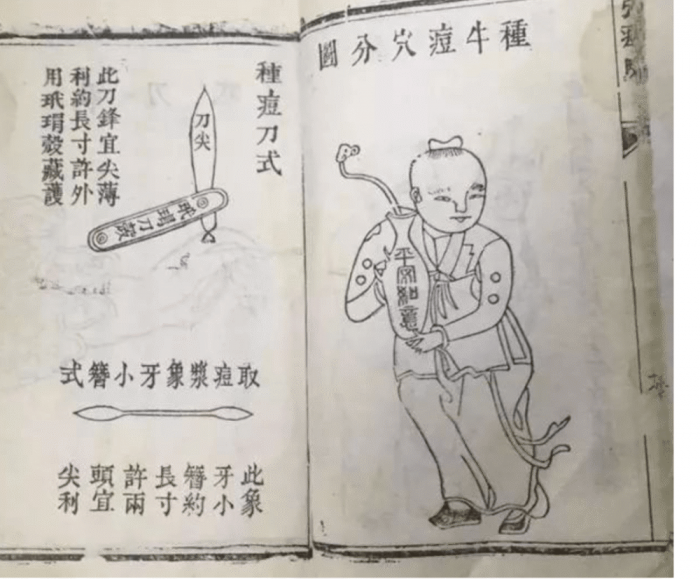 種牛痘穴分圖
平安如意
種痘刀式
刀尖
玳瑁刀殼
此刀鋒宜尖薄
利約長寸許外
用玳瑁殼藏護
取痘漿象牙小簪式
此象
牙小
簪約
長寸
許兩
頭宜
尖利